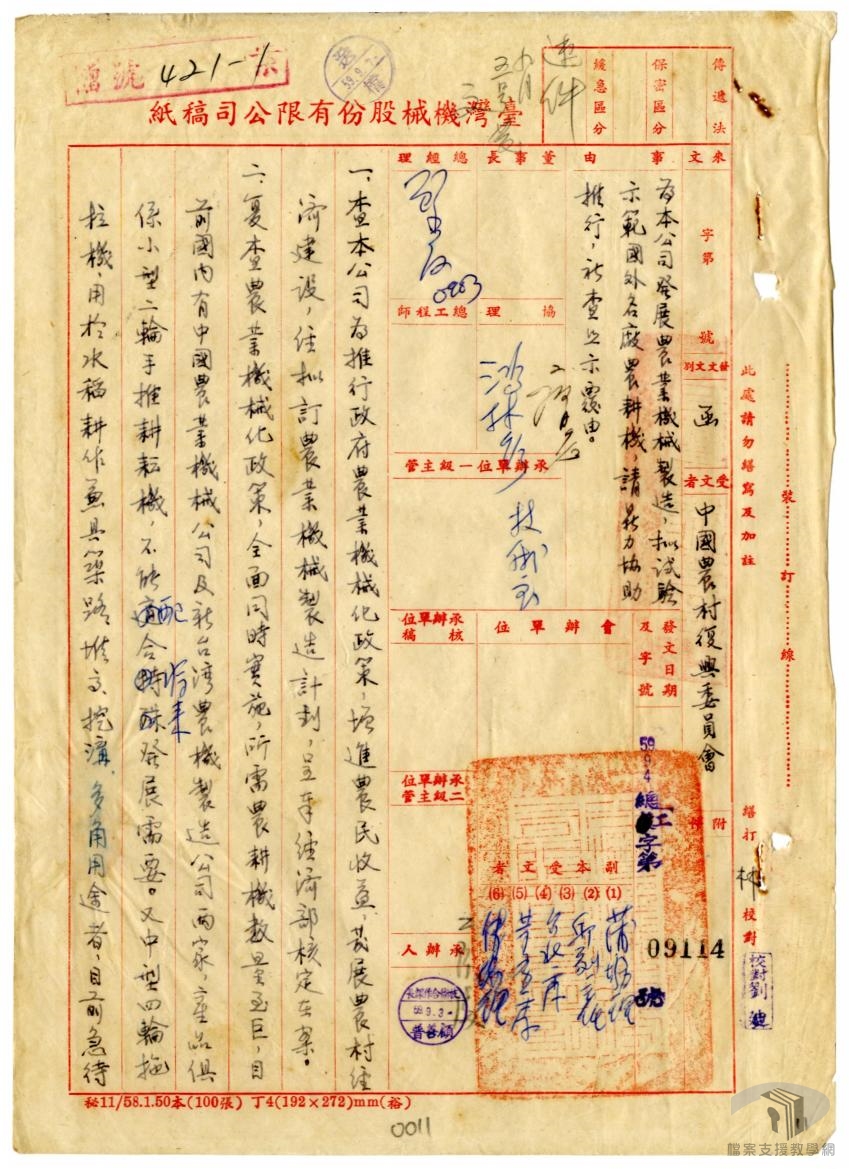 檔號 421-1
59.9.
臺灣機械股份有限公司稿紙
傳遞法
保密區分
緩急區分
速件
來文
字第
號
事由
為本公司發展農業機械製造，擬試驗
示範國外各廠農耕機，請鼎力協助
推行，祈查照示覆由。
董事長
總經理
0903
協理
總工程師
承辦單位一級主管
發文文別
函
受文者
中國農村復興委員會
發文日期及字號
59 9 4
總工字第
09114
號
附件
會辦單位
承辦單位核稿
承辦單位二級主管
承辦人
副本受文者
(1)
(2)
(3)
(4)
(5)
(6)
59.9.3
顧善普
此處請勿繕寫及加註
裝訂線
繕打
林
校對
校對劉
一、查本公司為推行政府農業機械化政策，增進農民收益，發展農村經
濟建設，經擬訂農業機械製造計劃，呈奉經濟部核定在案。
二、復查農業機械化政策，全面同時實施，所需農耕機數量至巨，目
前國內有中國農業機械公司及新台灣農機製造公司兩家，產品俱
係小型二輪手推耕耘機，不能配合將來發展需要。又中型四輪拖
拉機，用於水稻耕作兼具築路、堆高、挖溝、多角用途者，目前急待
秘11/58.1.50本(100張) 丁4(192×272)mm(裕)
0011
檔案支援教學網